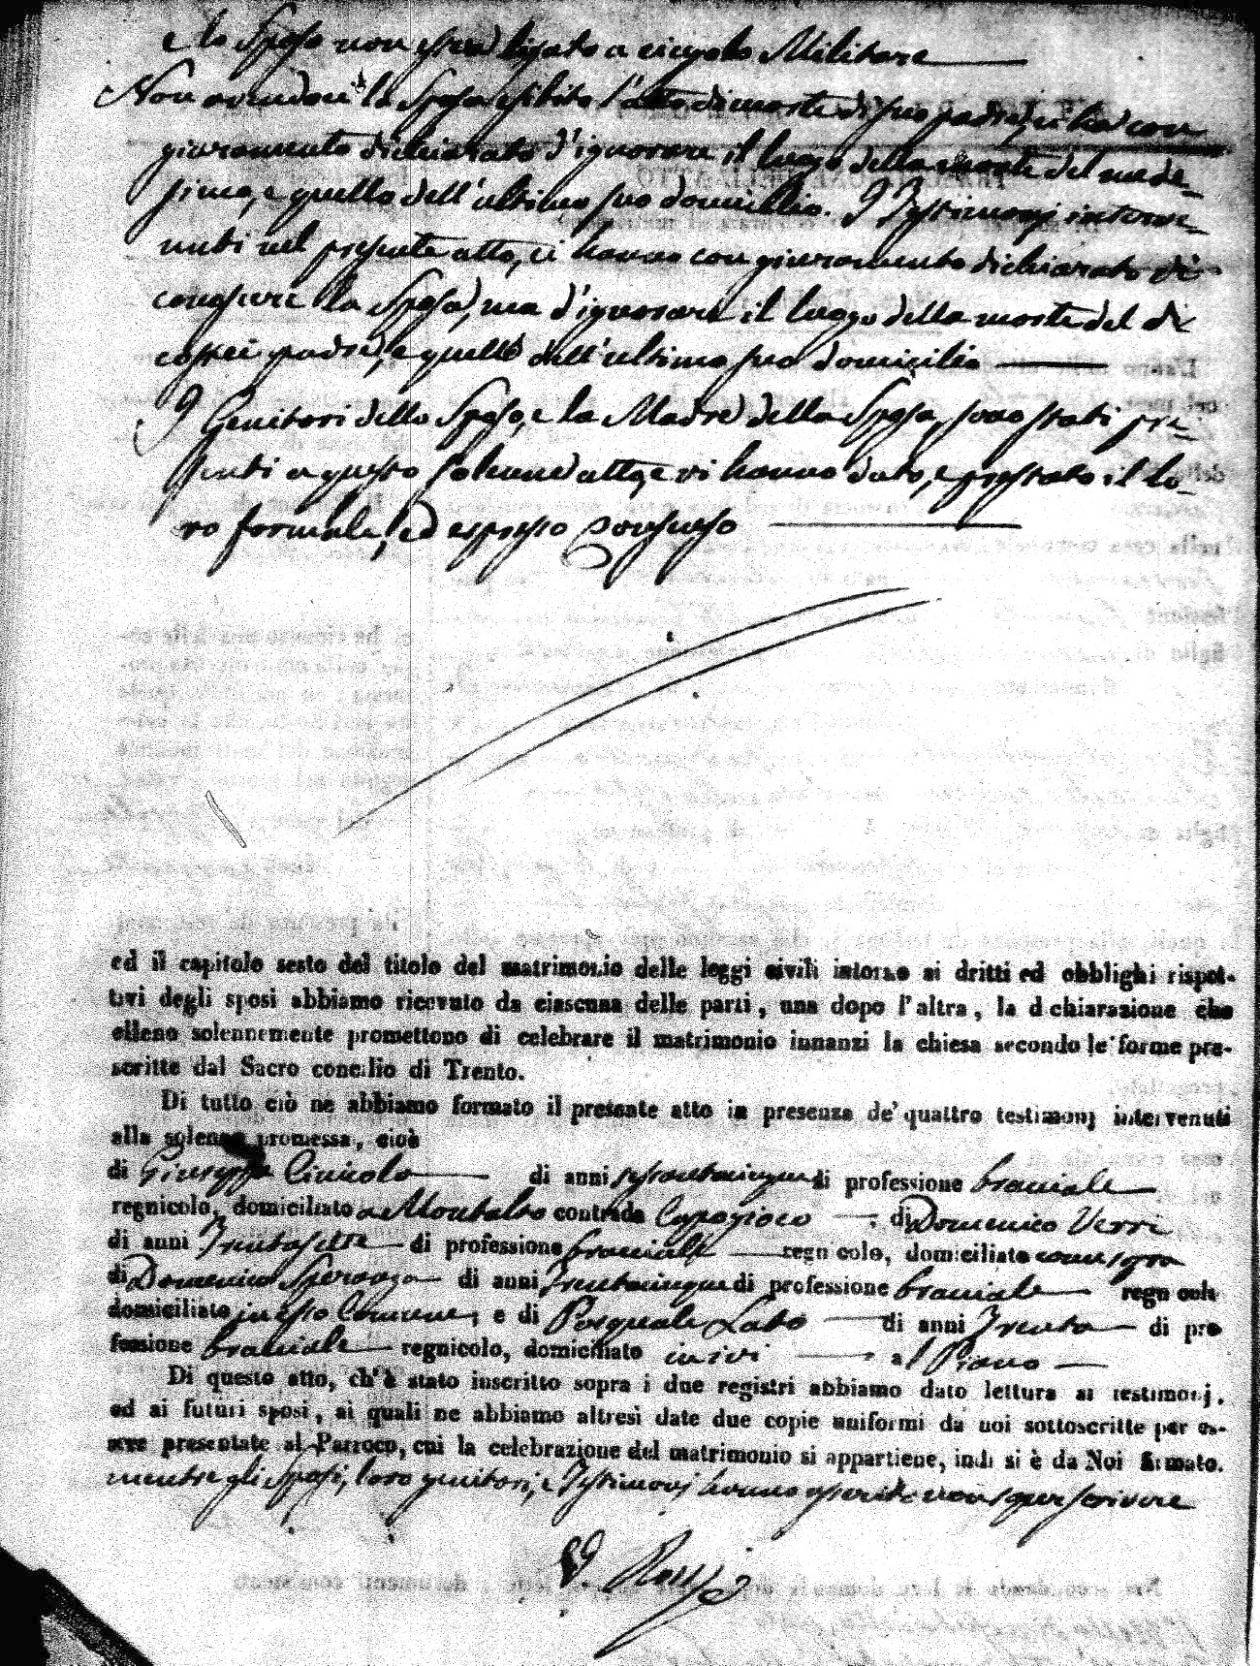 e lo Sposo non esser ligato a vincolo Militare
Non avendoci la Sposa esibito l'atto di morte di suo padre, ci ha con
giuramento dichiarato d'ignorare il luogo della morte del mede-
simo, e quello dell'ultimo suo domicilio. I Testimonj interve-
nuti nel presente atto, ci hanno con giuramento dichiarato di
conoscere la Sposa, ma d'ignorare il luogo della morte del di
costei padre, e quello dell'ultimo suo domicilio
I Genitori dello Sposo, e la Madre della Sposa, sono stati pre-
senti a questo solenne atto, e vi hanno dato, e prestato il lo-
ro formale, ed espresso consenso
ed il capitolo sesto del titolo del matrimonio delle leggi civili intorno ai dritti ed obblighi rispet-
tivi degli sposi abbiamo ricevuto da ciascuna delle parti, una dopo l'altra, la dichiarazione che
elleno solennemente promettono di celebrare il matrimonio innanzi la chiesa secondo le forme pre-
scritte dal Sacro concilio di Trento.
Di tutto ciò ne abbiamo formato il presente atto in presenza de' quattro testimonj intervenuti
alla solenne promessa, cioè
di Giuseppe di anni sessantacinque di professione bracciale
regnicolo, domiciliato a Montalto contrada ; di Domenico Verri
di anni Trentasette di professione bracciale regnicolo, domiciliato come sopra
di Domenico Speranza di anni Trentacinque di professione bracciale regnicolo
domiciliato in esso Comune, e di Pasquale Labo di anni Trenta di pro
fessione bracciale regnicolo, domiciliato in ivi al Piano
Di questo atto, ch'è stato inscritto sopra i due registri abbiamo dato lettura ai testimonj,
ed ai futuri sposi, ai quali ne abbiamo altresì date due copie uniformi da noi sottoscritte per es-
sere presentate al Parroco, cui la celebrazione del matrimonio si appartiene, indi si è da Noi firmato.
mentre gli Sposi, loro genitori, e Testimonj hanno asserito non saper scrivere